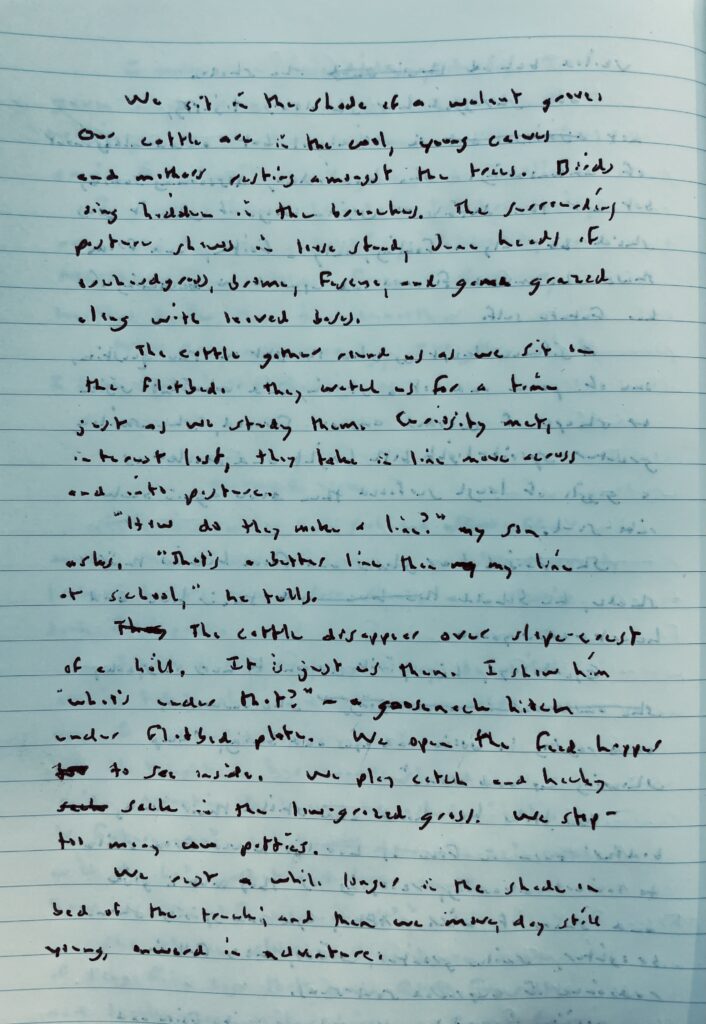 We sit in the shade of a walnut grove.
Our cattle are in the cool, young calves
and mothers resting amongst the trees. Birds
sing hidden in the branches. The surrounding
pasture shows in loose stand, June heads of
orchardgrass, brome, fescue, and gama grazed
along with leaved bases.
The cattle gather round us as we sit on
the flatbed. They watch us for a time
just as we study them. Curiosity met,
interest lost, they take in line move across
and into pasture.
"How do they make a line?" my son
asks. "That's a better line than my my line
at school," he tells.
They The cattle disappear over slope-crest
of a hill. It is just us then. I show him
"what's under that?" - a gooseneck hitch
under flatbed plate. We open the feed hopper
to see inside. We play catch and hacky
sack in the low-grazed grass. We stop-
too many cow patties.
We rest a while longer in the shade on
bed of the truck; and then we move, day still
young, onward in adventure.